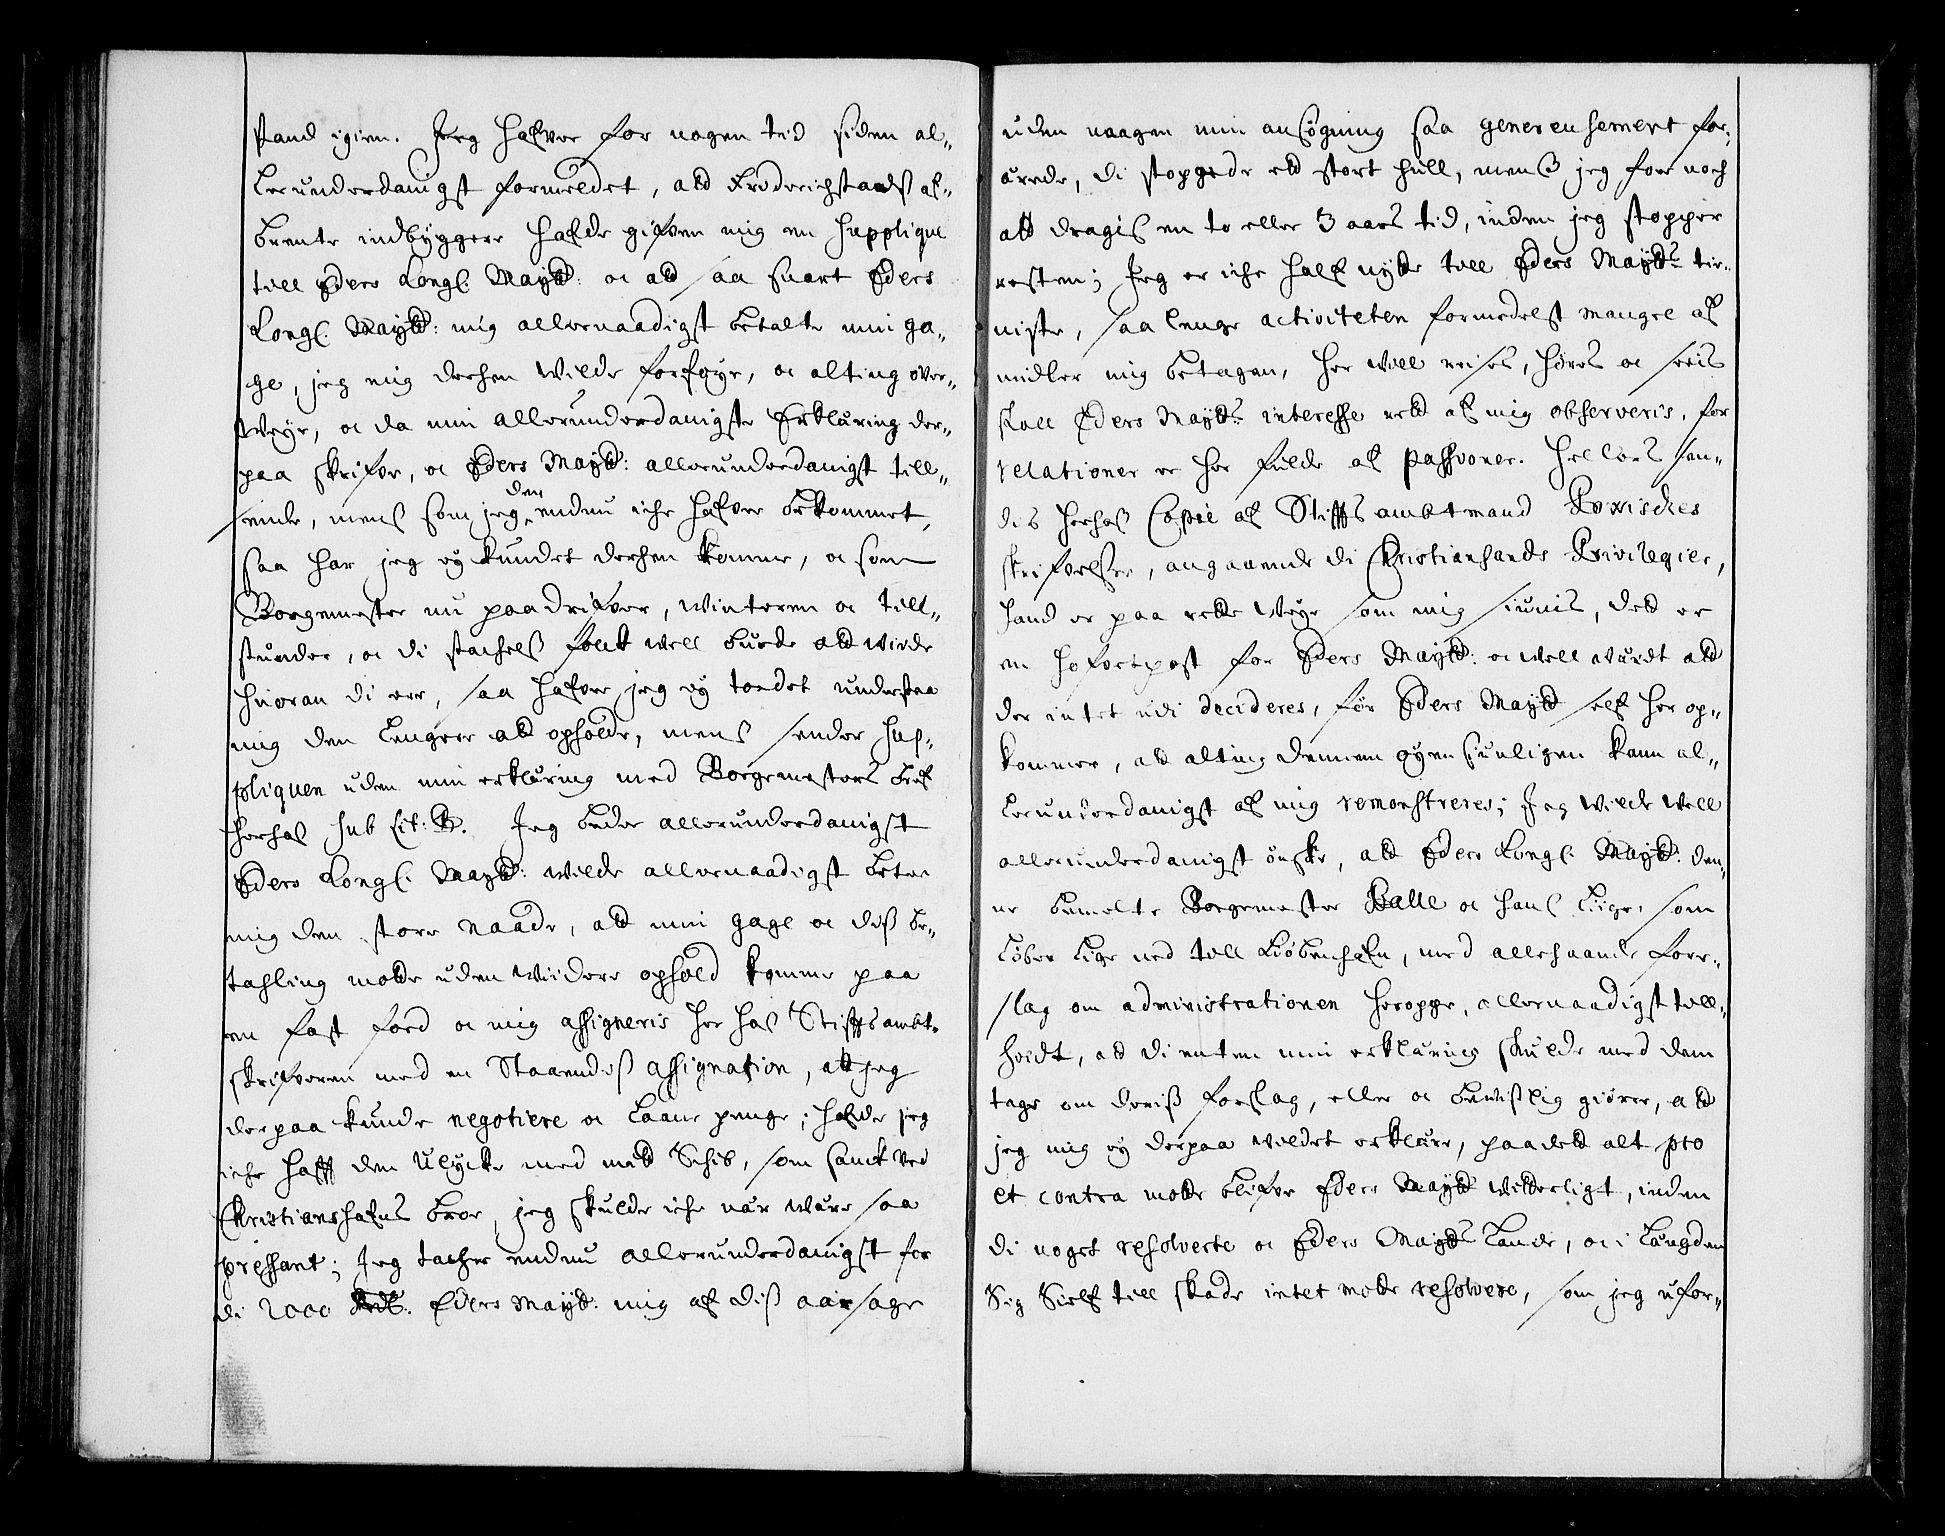 stand igien. Jeg hafver for nogen tid siden al„
lerunderdanigst formeldet, att Friderichstads af„
brente indbyggere hafde gifven mig en supplique
till Eders Kongl. Maytt: oc att saa snart Eders
Kongl. Maytt: mig allernaadigst betalte min ga„
ge, jeg mig derhen wilde forføye, oc alting over„
weye, oc da min allerunderdanigste Erklæring der„
paa skrifve, oc Eders Maytt: allerunderdanigst till„
sende, mens som jeg den endnu iche hafver bekommet,
saa har jeg ey kundet derhen komme, oc som
Borgemester nu paadrifver, winteren oc till„
stunder, oc di stachels folck well burde att wide
hvoran di ere, saa hafver jeg ey tordet understaa
mig den lengere att opholde, mens sender sup„
pliquen uden min erklæring med Borgemesters bref
herhos sub Lit: B. Jeg beder allerunderdanigst
Eders Kongl. Maytt: wilde allernaadigst betee
mig den store naade, att min gage oc dess be„
tahling motte uden widere ophold komme paa
en fast foed oc mig assigneris her hos Stiffts ambt„
skrifveren med en Staaendes assignation, att jeg
derpaa kunde negotiere oc laane penge; hafde jeg
iche hafft den Ulycke med mitt Schib, som sanck ved
Christianshafns broe, jeg skulde iche nær være saa
pressant; Jeg tacher endnu allerunderdanigst for
di 2000 Rdl. Eders Maytt: mig af diss aarsage
uden naagen min ansøgning saa genereusement for„
ærede, di stoppede ett stort hull, mens jeg faar noch
att dragis en to eller 3 aars tid, inden jeg stopper
resten; Jeg er iche half nytte till Eders Maytts tie„
niste, saa lenge activiteten formedelst mangel af
midler mig betagen, her will reises, høres oc seeis
skall Eders Maytts interesse rett af mig observeris, for
relationer er her fulde af passioner. Hellers sen„
dis herhos Copie af Stiffts ambtmand
skrifvelse, angaaende di Christiansands Privilegier,
hand er paa rette weye som mig siunis, dett er
en hofvetpost for Eders Maytt: oc well værdt att
der intet udi decideres, før Eders Maytt self her op„
kommer, att alting dennem øyensiunligen kann al„
lerunderdanigst af mig remonstreres; Jeg wilde well
allerunderdanigst ønske, att Eders Kongl. Maytt: den„
ne bemelte Borgemester Balle oc hans liige, som
løber lige ned till Kiøbenhafn, med allehaande fore„
slag om administrationen heroppe, allernaadigst till„
holdt, att di enten min erklæring skulde med dem
tage om deris forslag, eller oc bevislig giøre, att
jeg mig ey derpaa wildet erklære, paadett alt pro
et contra motte blifve Eders Maytt witterligt, inden
di noget resolverte oc Eders Maytts Lande, oc i Længden
Sig Sielf till skade intet motte resolvere, som jeg ufor„